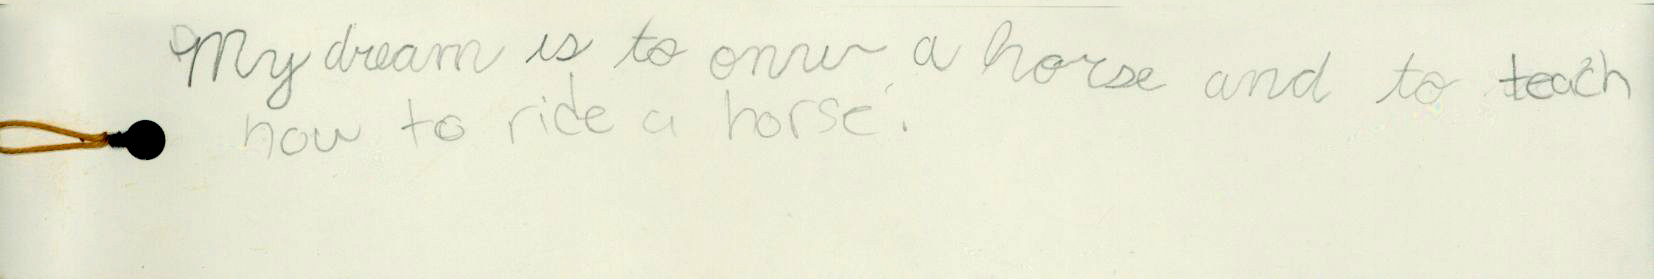 My dream is to onw a horse and to teach
how to ride a horse.